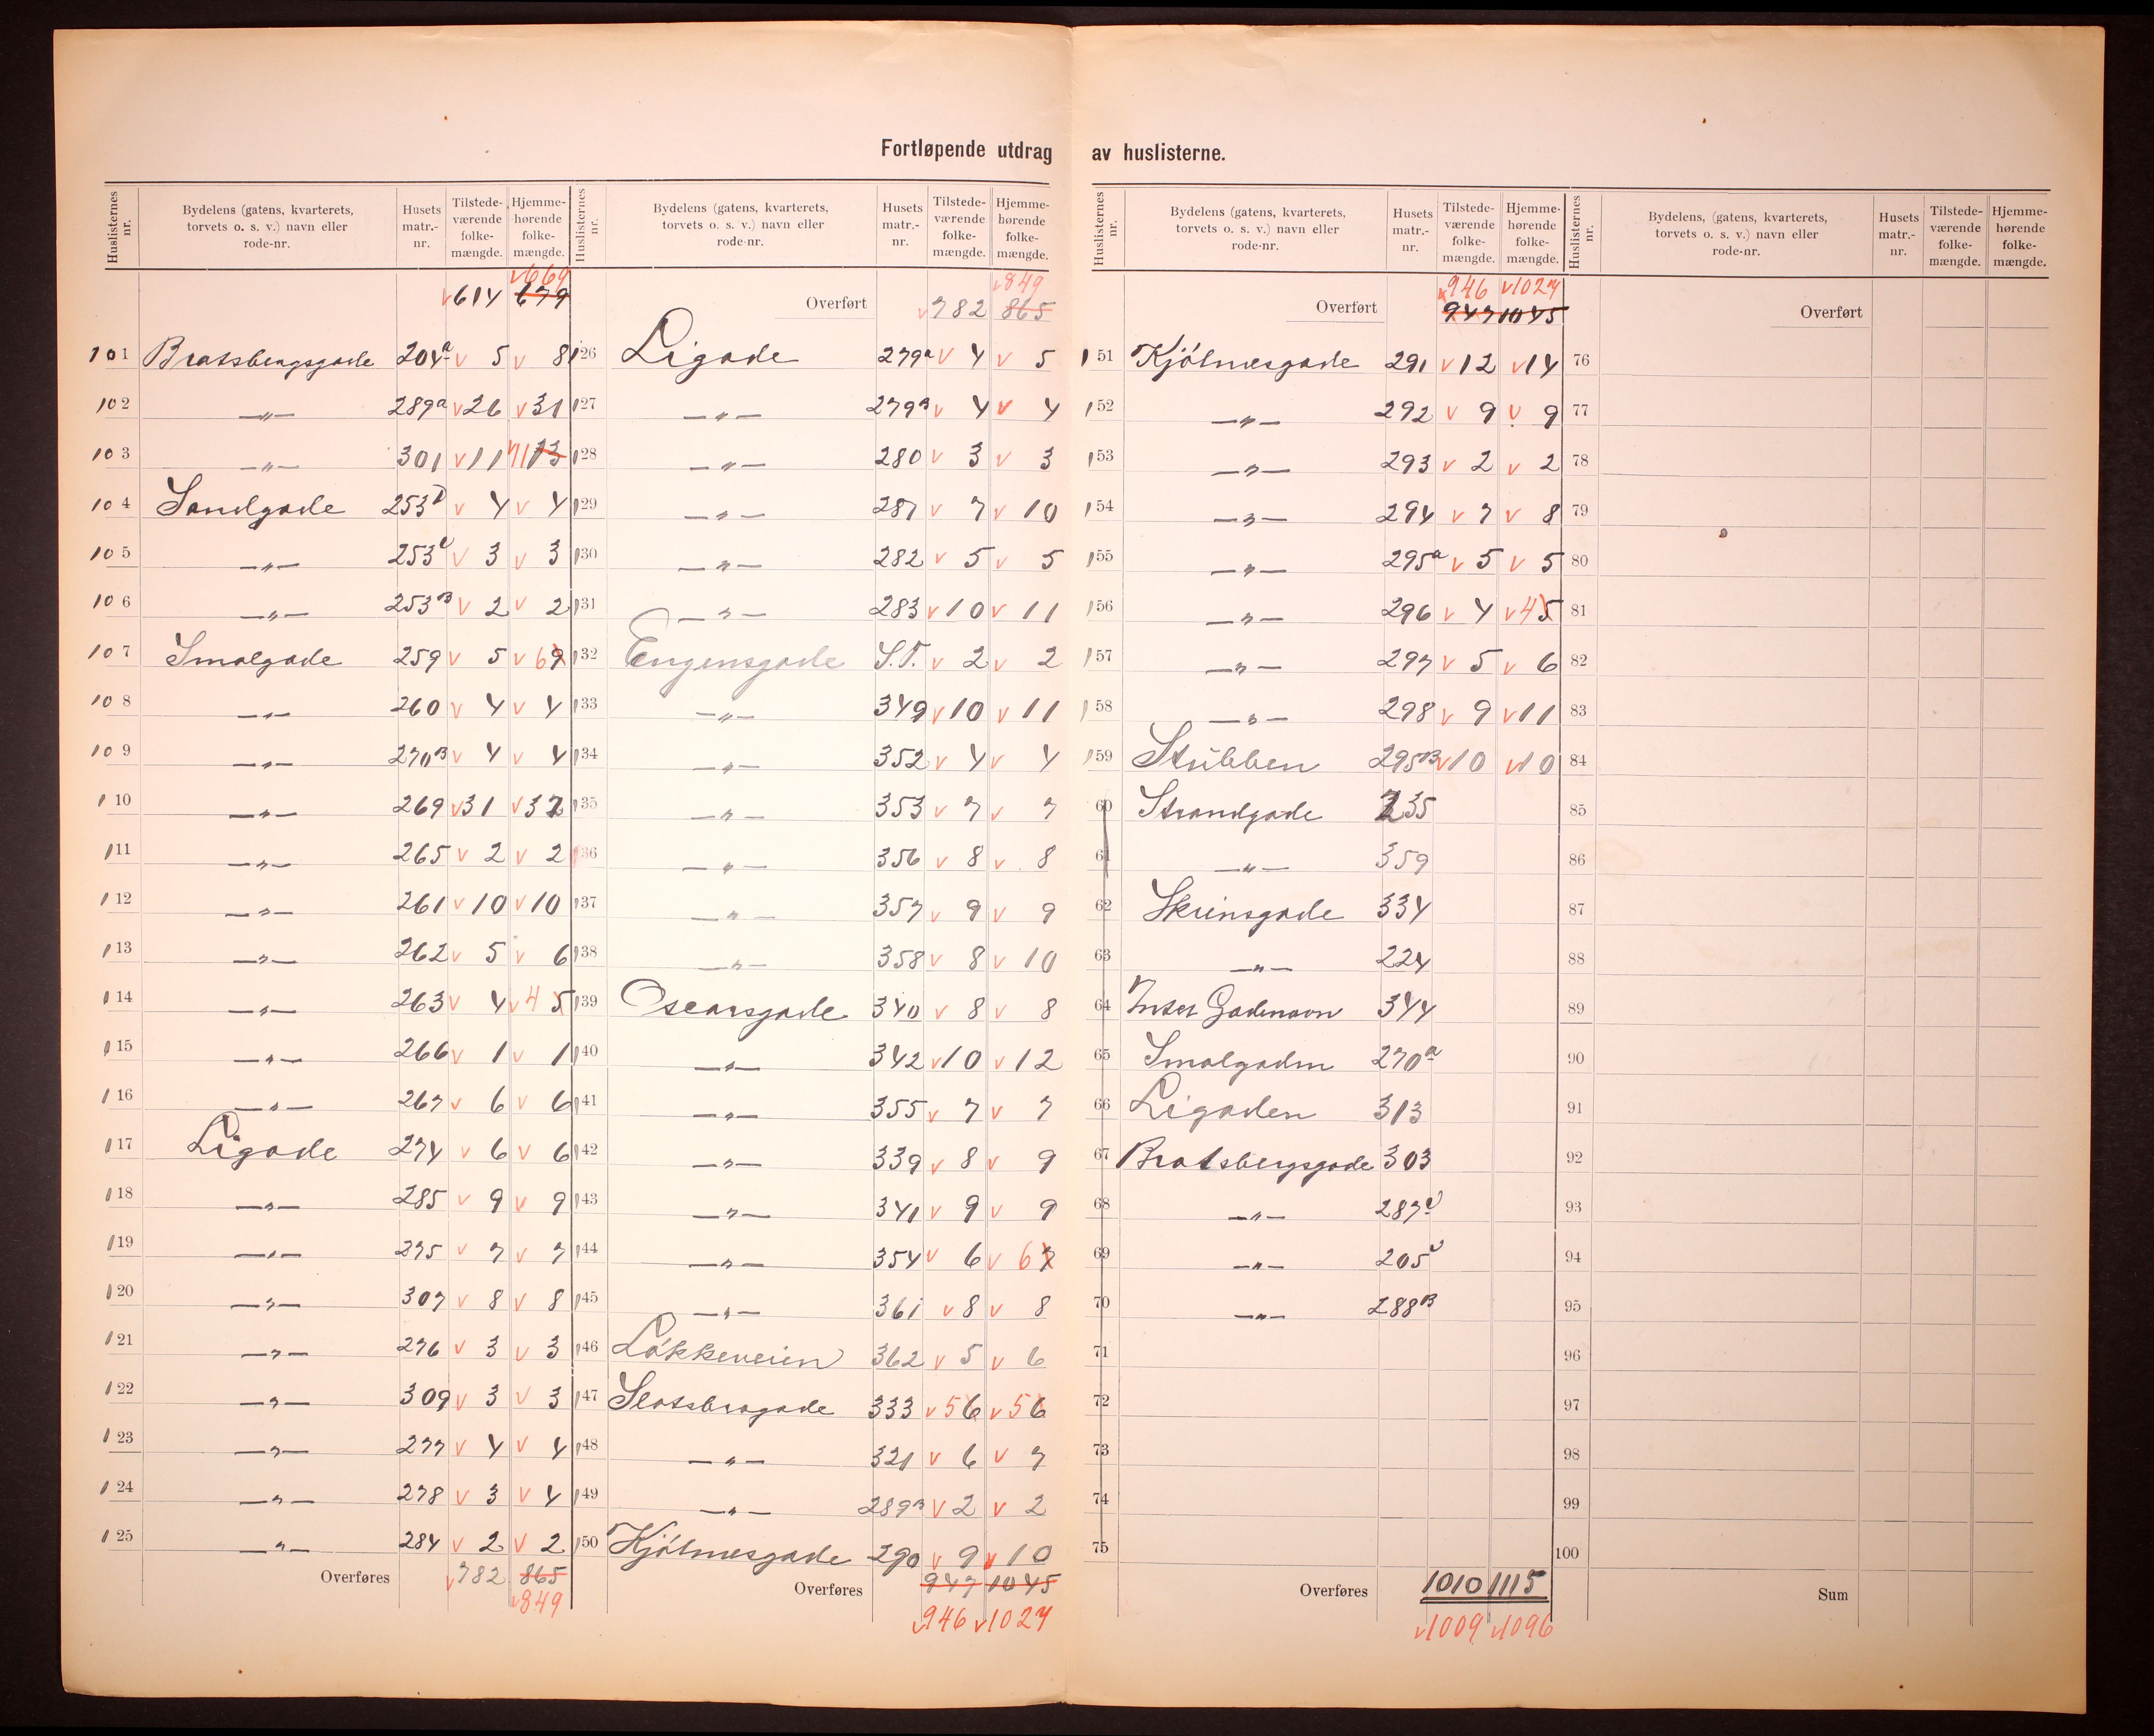 Fortløpende utdrag av huslisterne.
Huslisternes nr. | Bydelens (gatens, kvarterets, torvets o. s. v.) navn eller rode-nr. | Husets matr.-nr. | Tilstede-værende folke-mængde. | Hjemme-hørende folke-mængde.
v614 679 v669
101 Bratsbergsgade 204a v 5 v 8
102 —"— 289a v 26 v 31
103 —"— 301 v 11 v 11 13
104 Sandgade 253D v 4 v 4
105 —"— 253c v 3 v 3
106 —"— 253B v 2 v 2
107 Smalgade 259 v 5 v 6 9
108 —"— 260 v 4 v 4
109 —"— 270B v 4 v 4
110 —"— 269 v 31 v 32
111 —"— 265 v 2 v 2
112 —"— 261 v 10 v 10
113 —"— 262 v 5 v 6
114 —"— 263 v 4 v 4 5
115 —"— 266 v 1 v 1
116 —"— 267 v 6 v 6
117 Ligade 274 v 6 v 6
118 —"— 285 v 9 v 9
119 —"— 275 v 7 v 7
120 —"— 307 v 8 v 8
121 —"— 276 v 3 v 3
122 —"— 309 v 3 v 3
123 —"— 277 v 4 v 4
124 —"— 278 v 3 v 4
125 —"— 284 v 2 v 2
Overføres v782 865
v849
Huslisternes nr. | Bydelens (gatens, kvarterets, torvets o. s. v.) navn eller rode-nr. | Husets matr.-nr. | Tilstede-værende folke-mængde. | Hjemme-hørende folke-mængde.
Overført v782 865 v849
126 Ligade 279a v 4 v 5
127 —"— 279B v 4 v 4
128 —"— 280 v 3 v 3
129 —"— 281 v 7 v 10
130 —"— 282 v 5 v 5
131 —"— 283 v 10 v 11
132 Engensgade S.T. v 2 v 2
133 —"— 349 v 10 v 11
134 —"— 352 v 4 v 4
135 —"— 353 v 7 v 7
136 —"— 356 v 8 v 8
137 —"— 357 v 9 v 9
138 —"— 358 v 8 v 10
139 Oscarsgade 340 v 8 v 8
140 —"— 342 v 10 v 12
141 —"— 355 v 7 v 7
142 —"— 339 v 8 v 9
143 —"— 341 v 9 v 9
144 —"— 354 v 6 v 6 7
145 —"— 361 v 8 v 8
146 Løkkeveien 362 v 5 v 6
147 Slotsbrogade 333 v 5 6 v 5 6
148 —"— 321 v 6 v 7
149 —"— 289B v 2 v 2
150 Kjølnesgade 290 v 9 v 10
Overføres 947 1045
v946 v1027
Huslisternes nr. | Bydelens (gatens, kvarterets, torvets o. s. v.) navn eller rode-nr. | Husets matr.-nr. | Tilstede-værende folke-mængde. | Hjemme-hørende folke-mængde.
v946 v1027
Overført 947 1045
151 Kjølnesgade 291 v 12 v 14
152 —"— 292 v 9 v 9
153 —"— 293 v 2 v 2
154 —"— 294 v 7 v 8
155 —"— 295a v 5 v 5
156 —"— 296 v 4 v 4 5
157 —"— 297 v 5 v 6
158 —"— 298 v 9 v 11
159 Stubben 295B v 10 v 10
60 Strandgade 235
61 —"— 359
62 Skrinsgade 334
63 —"— 224
64 Intet Gadenavn 344
65 Smalgaden 270a
66 Ligaden 313
67 Bratsbergsgade 303
68 —"— 287c
69 —"— 205c
70 —"— 288B
71
72
73
74
75
Overføres 1010 1115
v1009 v1096
Huslisternes nr. | Bydelens, (gatens, kvarterets, torvets o. s. v.) navn eller rode-nr. | Husets matr.-nr. | Tilstede-værende folke-mængde. | Hjemme-hørende folke-mængde.
Overført
76
77
78
79
80
81
82
83
84
85
86
87
88
89
90
91
92
93
94
95
96
97
98
99
100
Sum